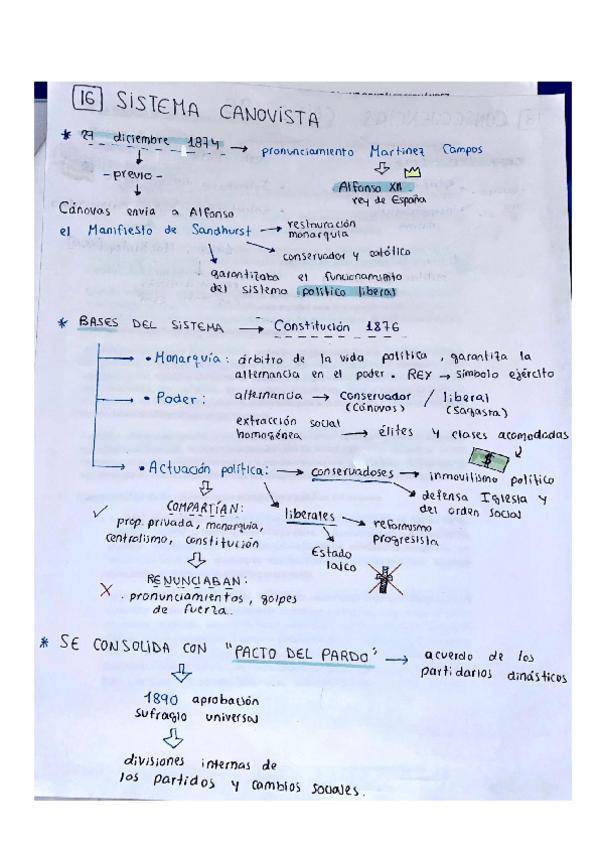 16 SISTEMA CANOVISTA
* 29 diciembre 1874 → pronunciamiento Martínez Campos
Alfonso XII
rey de España
- previo -
Cánovas envía a Alfonso
el Manifiesto de Sandhurst → restauración
monarquía
conservador y católico
garantizaba el funcionamiento
del sistema político liberal
* BASES DEL SISTEMA → Constitución 1876
• Monarquía: árbitro de la vida política, garantiza la
alternancia en el poder. REY → símbolo ejército
• Poder: alternancia → conservador / liberal
(Cánovas) (Sagasta)
extracción social
homogénea → élites y clases acomodadas
$
• Actuación política: → conservadoses → inmovilismo político
defensa Iglesia y
del orden social
COMPARTÍAN:
prop. privada, monarquía,
centralismo, constitución
liberales
reformismo
progresista
Estado
laico
RENUNCIABAN:
X . pronunciamientos, golpes
de fuerza.
* SE CONSOLIDA CON "PACTO DEL PARDO" → acuerdo de los
partidarios dinásticos
1890 aprobación
sufragio universal
divisiones internas de
los partidos y cambios sociales.